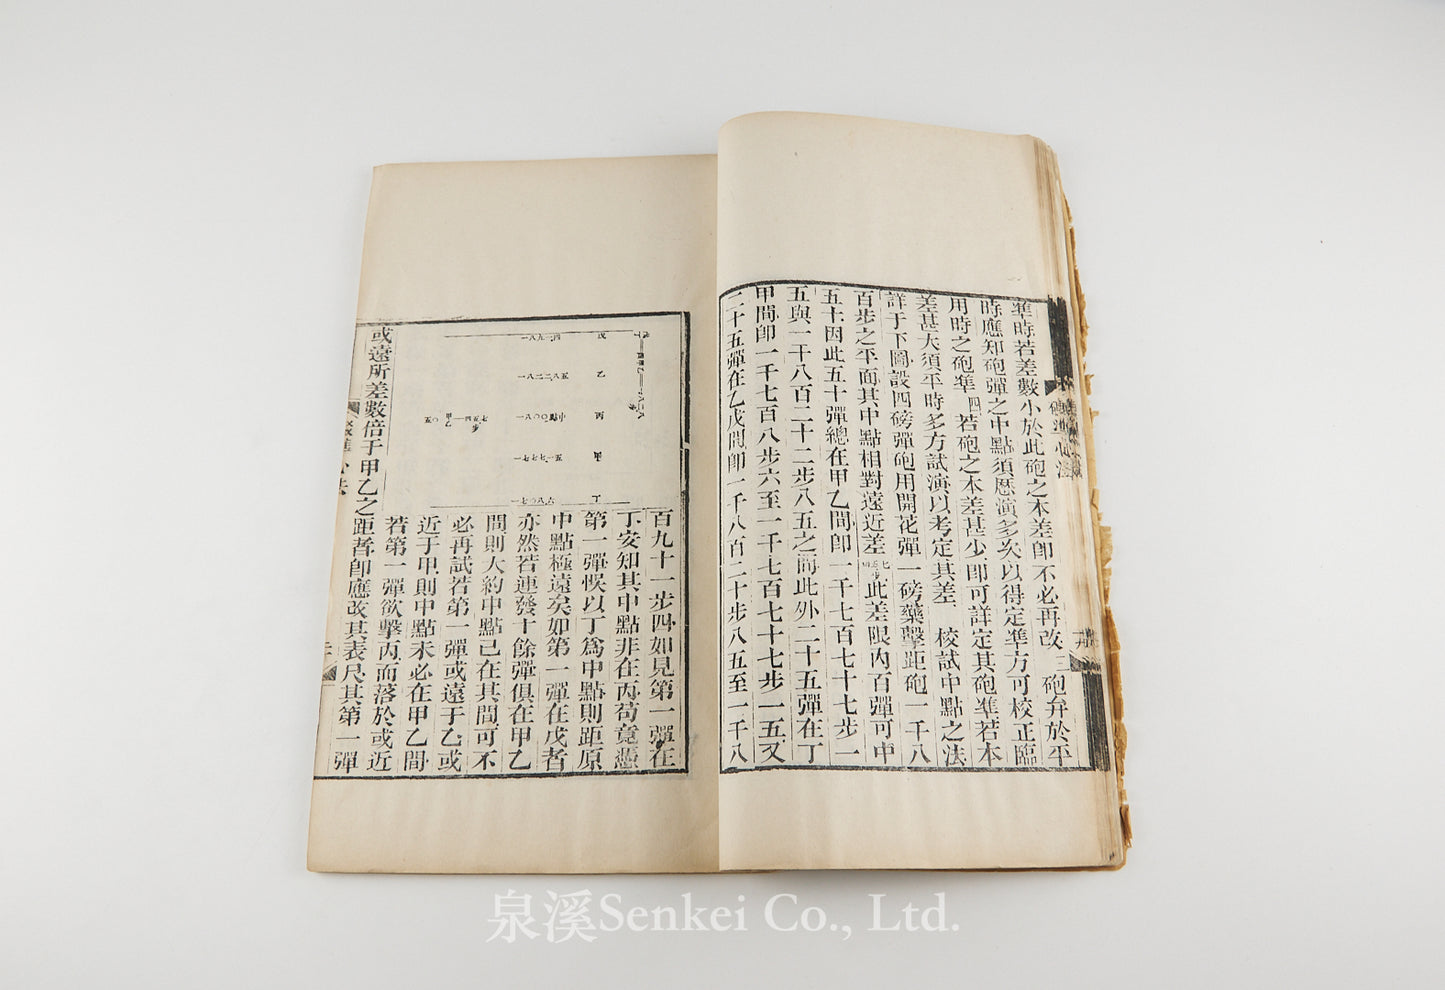 準時若差數小於此砲之本差卽不必再改 三 砲弁於平
時應知砲彈之中點須歷演多次以得定準方可校正臨
用時之砲準 四 若砲之本差甚少卽可詳定其砲準若本
差甚大須平時多方試演以考定其差 校試中點之法
詳于下圖設四磅彈砲用開花彈一磅藥擊距砲一千八
百步之平面其中點相對遠近差此差眼內百彈可中
五十因此五十彈總在甲乙間卽一千七百七十七步一
五與一千八百二十二步八五之間此外二十五彈在丁
甲間卽一千七百八步六至一千七百七十七步一五又
二十五彈在乙戊間卽一千八百二十步八五至一千八
戊 一八九一四
乙 一八二二八五
丙 一八〇〇中點
甲 一七七七一五
丁 一七〇八六
百九十一步四如見第一彈在
丁安知其中點非在丙苟竟憑
第一彈悞以丁爲中點則距原
中點極遠矣如第一彈在戊者
亦然若連發十餘彈俱在甲乙
間則大約中點已在其間可不
必再試若第一彈或遠于乙或
近于甲則中點未必在甲乙間
若第一彈欲擊丙而落於或近
或遠所差數倍于甲乙之距者卽應改其表尺其第一彈
泉溪Senkei Co., Ltd.